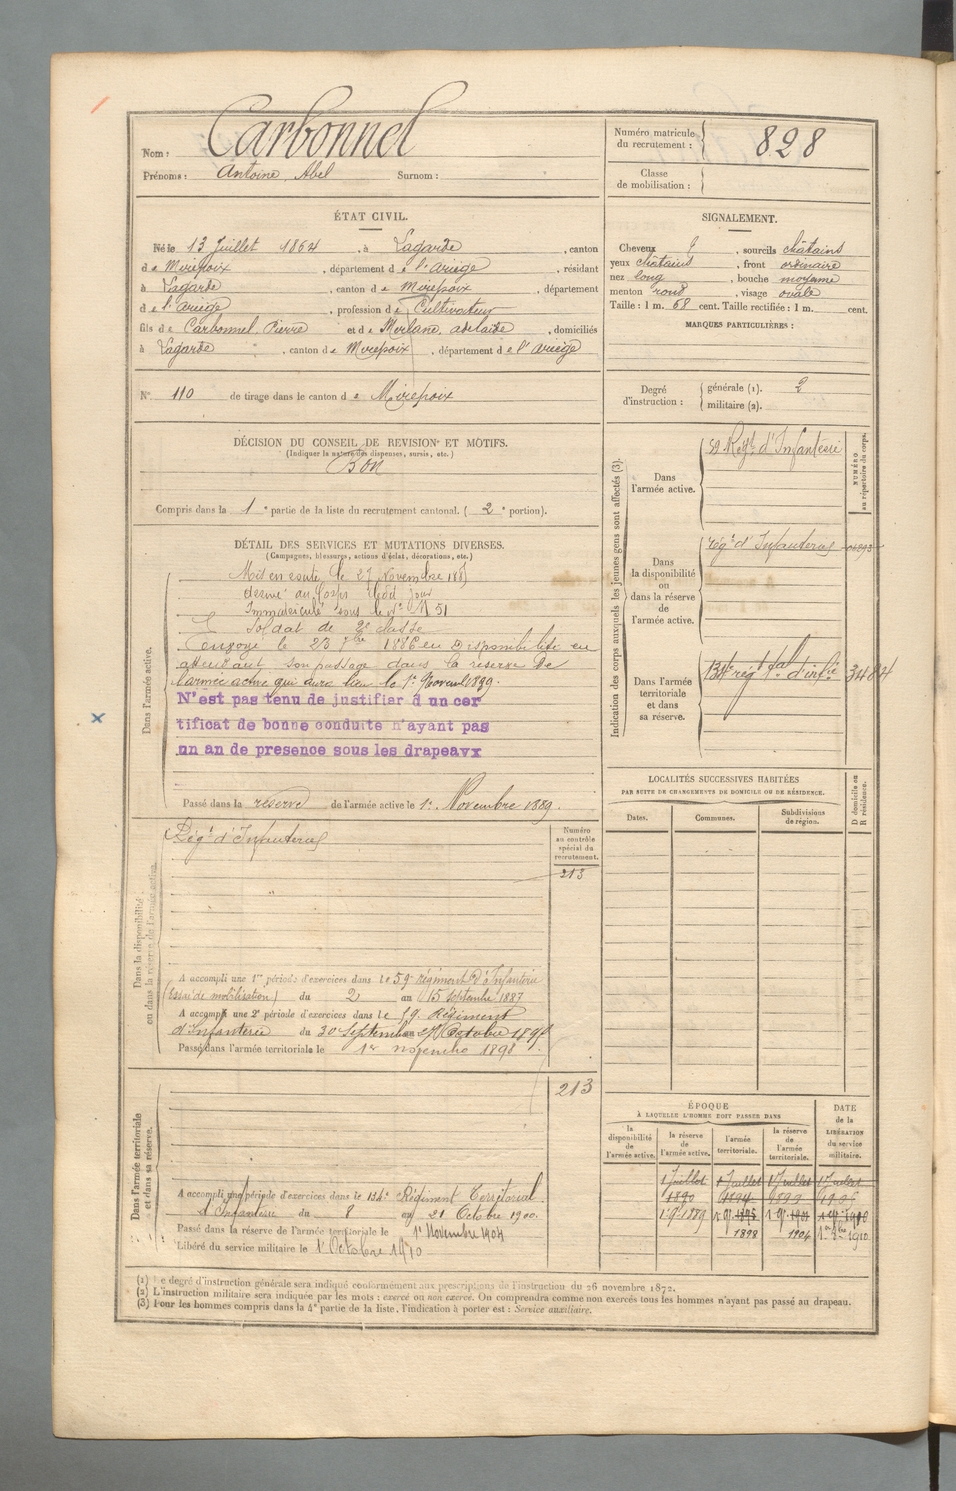 Nom : Carbonnel
Prénoms : Antoine Abel Surnom :
Numéro matricule du recrutement : 828
Classe de mobilisation :
ÉTAT CIVIL.
Né le 13 Juillet 1864, à Lagarde, canton
de Mirepoix, département de l'Ariège, résidant
à Lagarde, canton de Mirepoix, département
de l'Ariège, profession de Cultivateur
fils de Carbonnel, Pierre et de Merlane, adelaïde, domiciliés
à Lagarde, canton de Mirepoix, département de l'Ariège
SIGNALEMENT.
Cheveux, sourcils châtains
yeux châtains, front ordinaire
nez long, bouche moyenne
menton rond, visage ovale
Taille : 1 m. 68 cent. Taille rectifiée : 1 m. cent.
MARQUES PARTICULIÈRES :
N° 110 de tirage dans le canton de Mirepoix
Degré d'instruction : générale (1). 2
militaire (2).
DÉCISION DU CONSEIL DE REVISION ET MOTIFS.
(Indiquer la nature des dispenses, sursis, etc.)
Bon
Compris dans la 1e partie de la liste du recrutement cantonal. (2e portion).
DÉTAIL DES SERVICES ET MUTATIONS DIVERSES.
(Campagnes, blessures, actions d'éclat, décorations, etc.)
Dans l'armée active.
Mis en route le 27 Novembre 188
au Corps le dit jour
Immatriculé sous le N°
Soldat de 2e classe
Envoyé le 23 7bre 1886 en Disponibilité en
attendant son passage dans la réserve de
l'armée active qui aura lieu le 1er Novemb 1889.
N'est pas tenu de justifier d un cer
tificat de bonne conduite n'ayant pas
un an de presence sous les drapeaux
Passé dans la réserve de l'armée active le 1er Novembre 1889.
Dans la disponibilité ou dans la réserve de l'armée active.
Rég.t d'Infanterie
Numéro au contrôle spécial du recrutement.
213
A accompli une 1re période d'exercices dans le 59e Régiment D'Infanterie
(Essai de mobilisation) du 2 au 15 Septembre 1887
A accompli une 2e période d'exercices dans le 59e Régiment
d'Infanterie du 30 Septembre 27 Octobre 189
Passé dans l'armée territoriale le 1er novembre 1898.
Dans l'armée territoriale et dans sa réserve.
213
A accompli une période d'exercices dans le 134e Régiment Territorial
d'Infanterie du 8 au 21 Octobre 1900.
Passé dans la réserve de l'armée territoriale le 1er Novembre 1904
Libéré du service militaire le 1er Octobre 1910
Indication des corps auxquels les jeunes gens sont affectés (3).
NUMÉRO au répertoire du corps.
Dans l'armée active.
59 Reg.t d'Infanterie
Dans la disponibilité ou dans la réserve de l'armée active.
rég.t d'Infanterie
Dans l'armée territoriale et dans sa réserve.
134e rég.t t.al d'inf.ie 3484
LOCALITÉS SUCCESSIVES HABITÉES
PAR SUITE DE CHANGEMENTS DE DOMICILE OU DE RÉSIDENCE.
Dates. Communes. Subdivisions de région. D domicile ou R résidence.
ÉPOQUE
À LAQUELLE L'HOMME DOIT PASSER DANS
la disponibilité de l'armée active. la réserve de l'armée active. l'armée territoriale. la réserve de l'armée territoriale. DATE de la LIBÉRATION du service militaire.
1 Juillet 1 Juillet 1 Juillet 1 Juillet
1890 1894 1899 1905
1 9bre 1889
1898 1904 1910.
(1) Le degré d'instruction générale sera indiqué conformément aux prescriptions de l'instruction du 26 novembre 1872.
(2) L'instruction militaire sera indiquée par les mots : exercé ou non exercé. On comprendra comme non exercés tous les hommes n'ayant pas passé au drapeau.
(3) Pour les hommes compris dans la 4e partie de la liste, l'indication à porter est : Service auxiliaire.